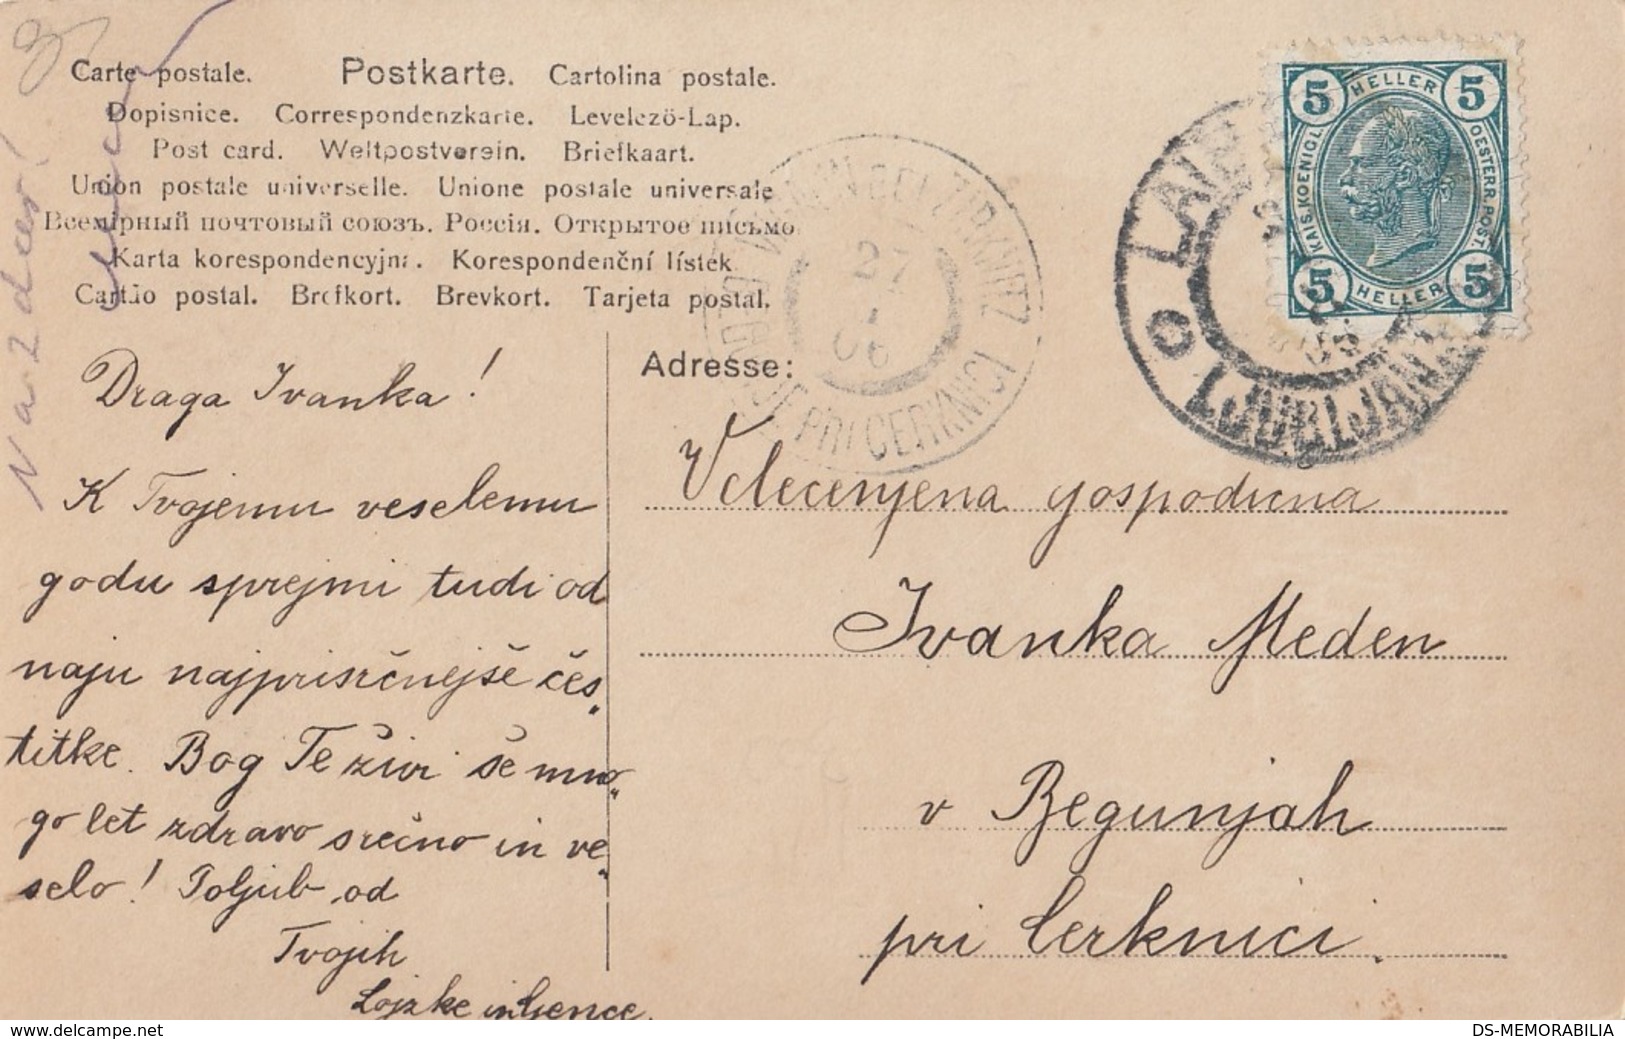 Carte postale. Postkarte. Cartolina postale.
Dopisnice. Correspondenzkarte. Levelező-Lap.
Post card. Weltpostverein. Briefkaart.
Union postale universelle. Unione postale universale
Всемірный почтовый союзъ. Россія. Открытое письмо
Karta korespondencyjna. Korespondenční lístek
Cartão postal. Brefkort. Brevkort. Tarjeta postal.
Na zdar!
5 HELLER 5
KAIS. KOENIGL. OESTERR. POST.
5 HELLER 5
LAIBACH
LJUBLJANA
BEI ZIRKNITZ
27
06
PRI CERKNICI
Draga Ivanka!
K Tvojemu veselemu
godu sprejmi tudi od
naju najprisrčnejše čes„
titke. Bog Te živi še mno„
go let zdravo srečno in ve„
selo! Poljub od
Tvojih
Lojzke in
Adresse:
Velecenjena gospodična
Ivanka Meden
v Begunjah
pri Cerknici.
www.delcampe.net
DS-MEMORABILIA